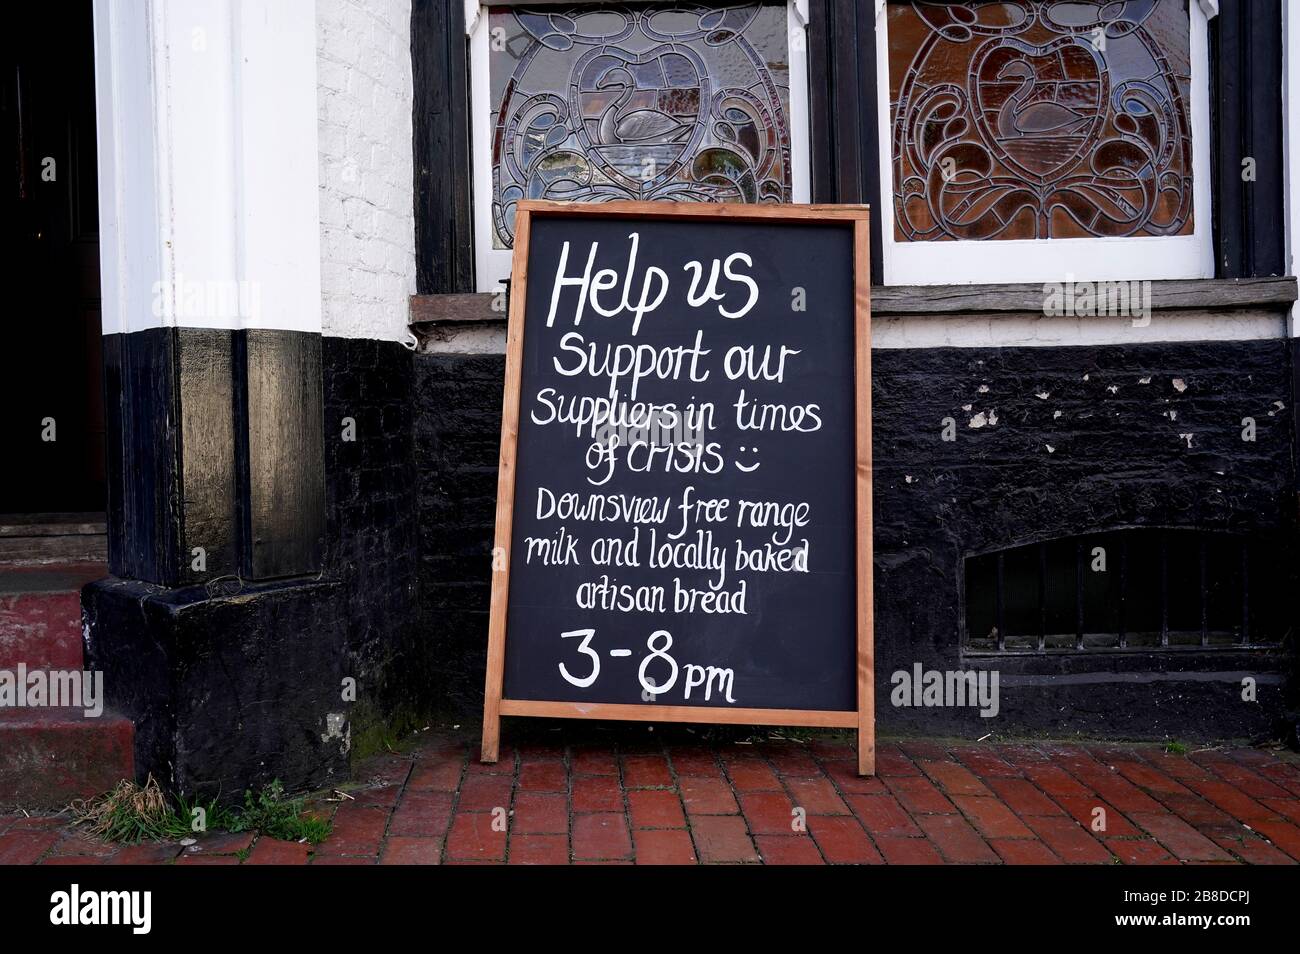 Help us
Support our
Suppliers in times
of crisis
Downsview free range
milk and locally baked
artisan bread
3-8pm
alamy
Image ID: 2B8DCPJ
www.alamy.com